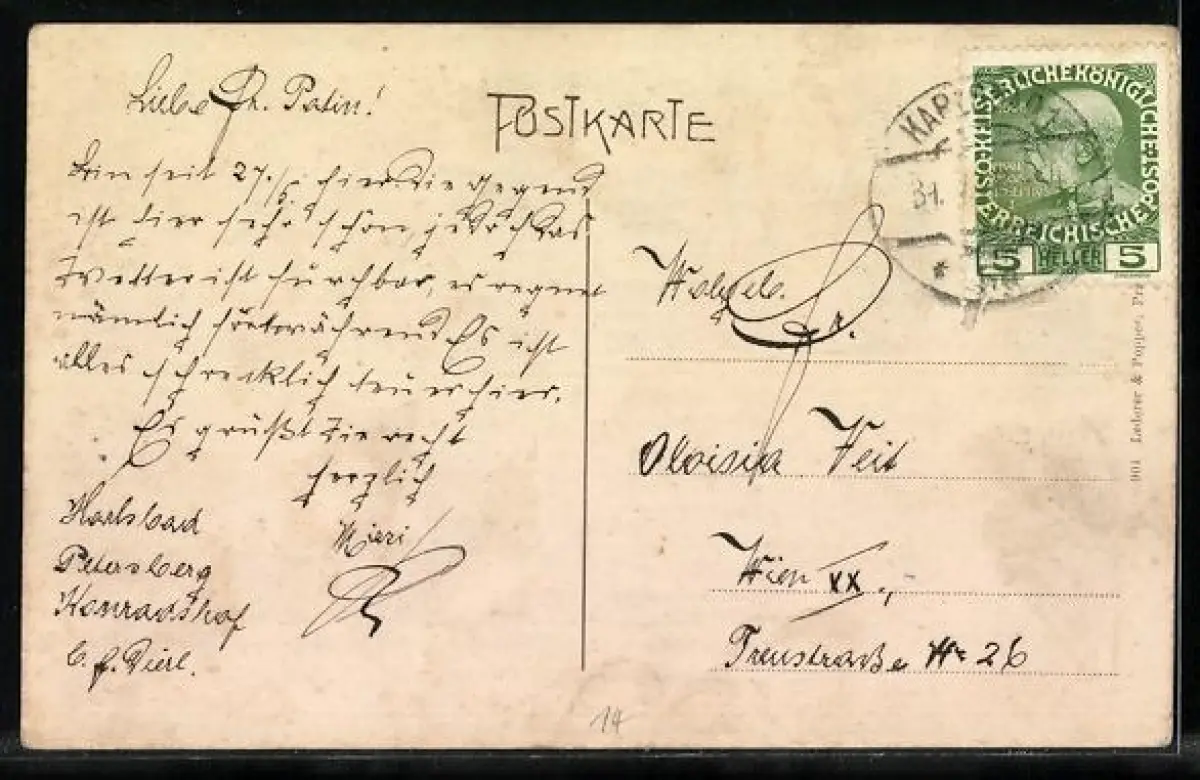 Liebe Fr. Patin!
Bin seit 27./5. hier. Die Gegend
ist hier sehr schön, jedoch das
Wetter ist furchtbar, es regnet
nämlich fortwährend. Es ist
alles schrecklich teuer hier.
Es grüßt Sie recht
herzlich
Mizzi
Karlsbad
Petersberg
Konradshof
b. H. Dierl.
POSTKARTE
Wohlgeb.
Fr.
Aloisia Veit
Wien XX.,
Treustraße Nr 26
KAISERLICHE KÖNIGLICHE ÖSTERREICHISCHE POST
5 HELLER 5
31.
901 Lederer & Popper, Pra
14